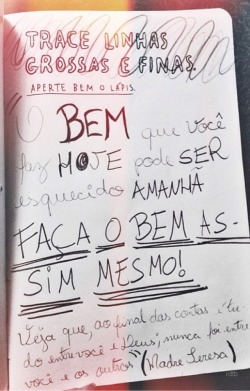 TRACE LINHAS
GROSSAS E FINAS.
APERTE BEM O LÁPIS.
O BEM que você
faz HOJE pode SER
esquecido AMANHÃ
FAÇA O BEM AS-
SIM MESMO!
Veja que, ao final das contas é tu
do entre você e Deus; nunca foi entre
você e os outros (Madre Teresa)